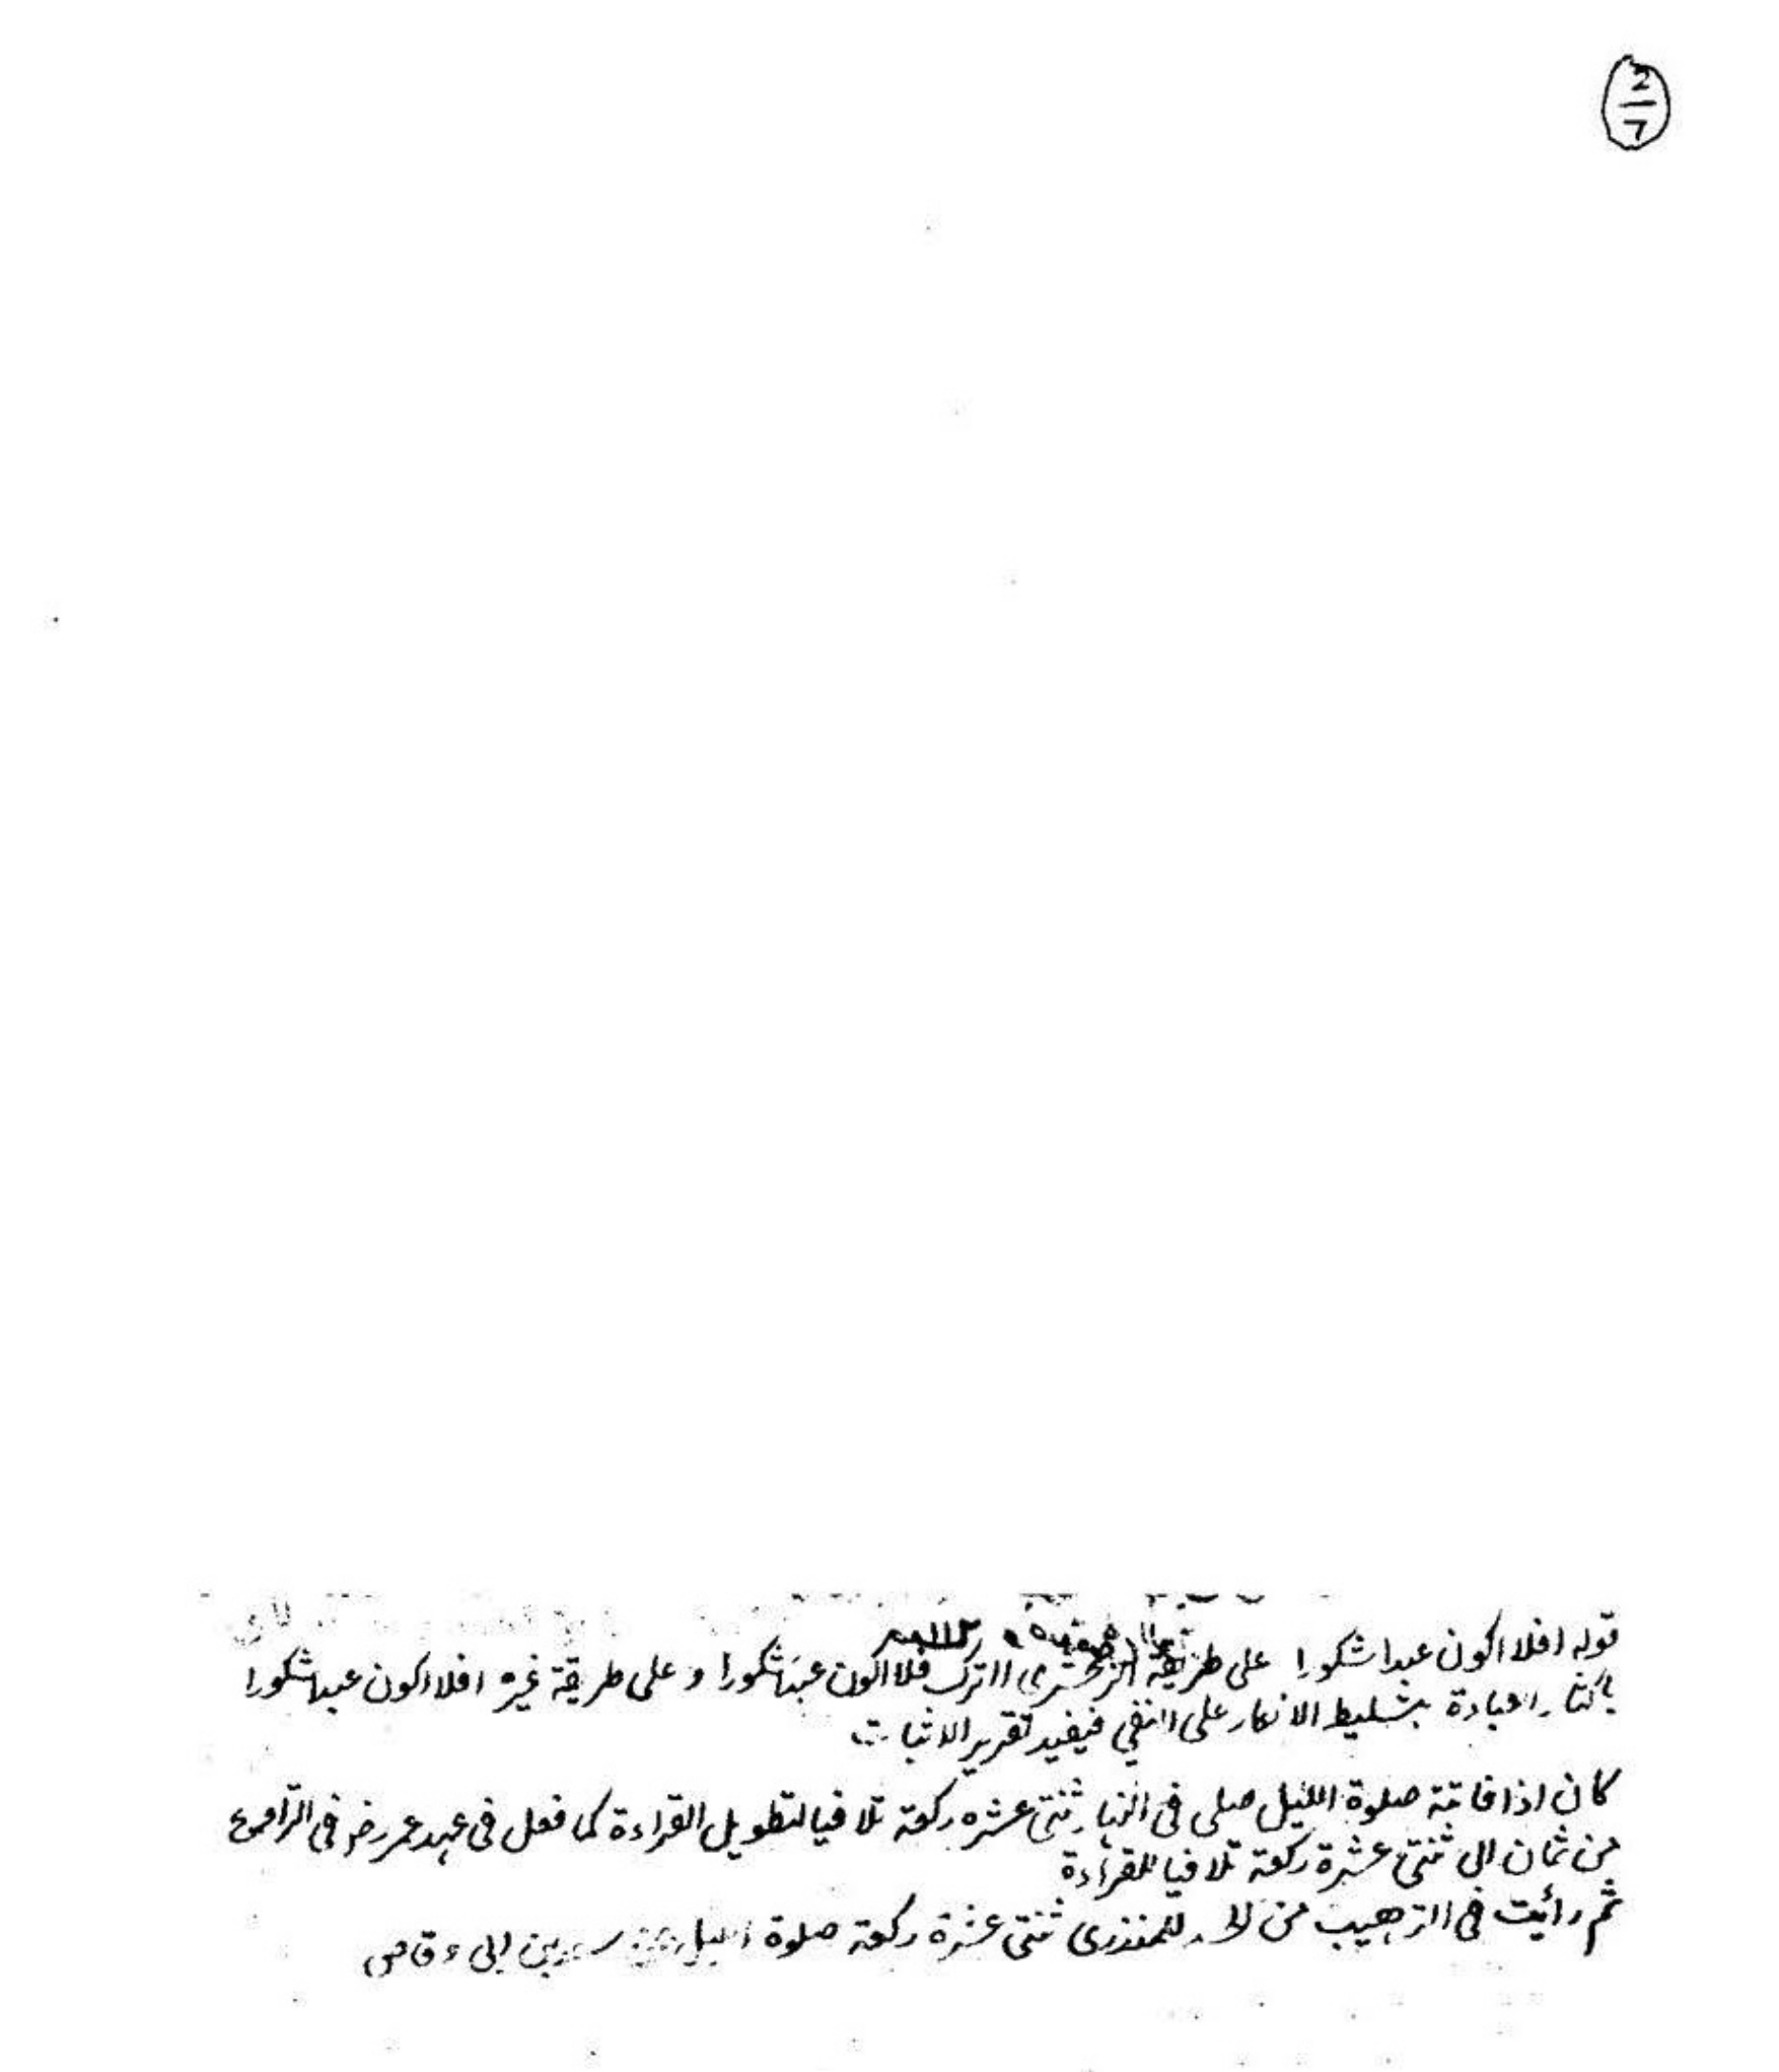 2/7
قوله افلا اكون عبدا شكورا على طريقة الزمخشري االترك فلا اكون عبدا شكورا و على طريقة غيره افلا اكون عبدا شكورا
باكثار العبادة بتسليط الانكار على النفي فيفيد تقرير الاثبات
كان اذا فاتته صلوة الليل صلى في النهار ثنتى عشره ركعة تلافيا لتطويل القراءة كما فعل في عهد عمر رضـ في التراويح
من ثمان الى ثنتى عشرة ركعة تلافيا للقراءة
ثم رأيت في الترهيب من للمنذرى ثنتى عشرة ركعة صلوة الليل عن سعد بن ابى وقاص